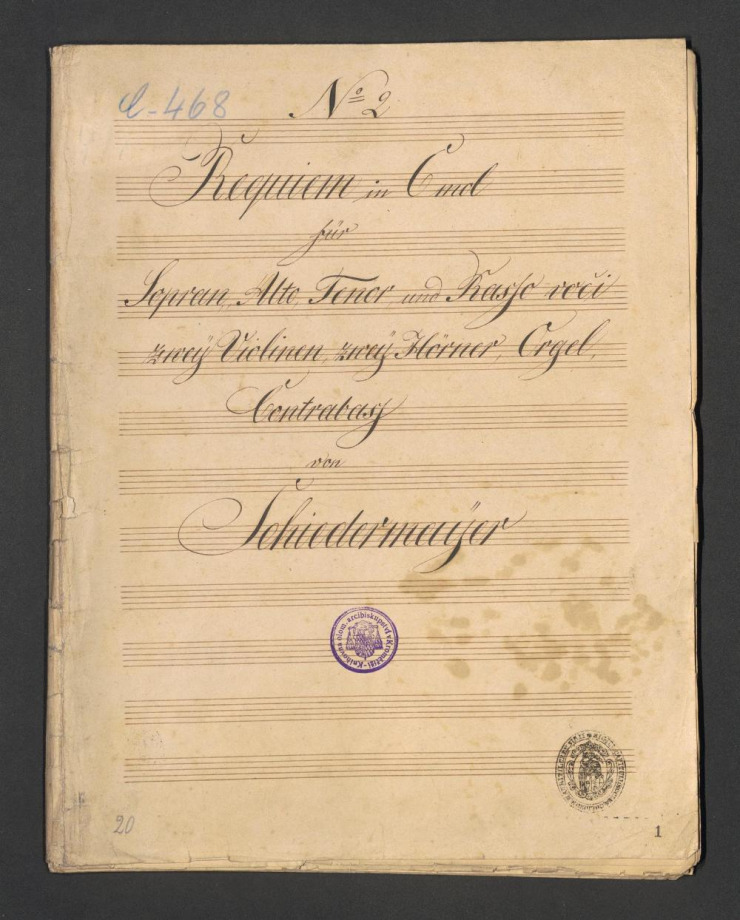 C-468
No 2
Requiem in C mol
für
Sopran, Alto, Tenor und Basso voci
zwey Violinen, zwey Hörner, Orgel,
Contrabass
von
Schiedermayer
Knihovna olom. arcibiskupství v Kroměříži
20
1